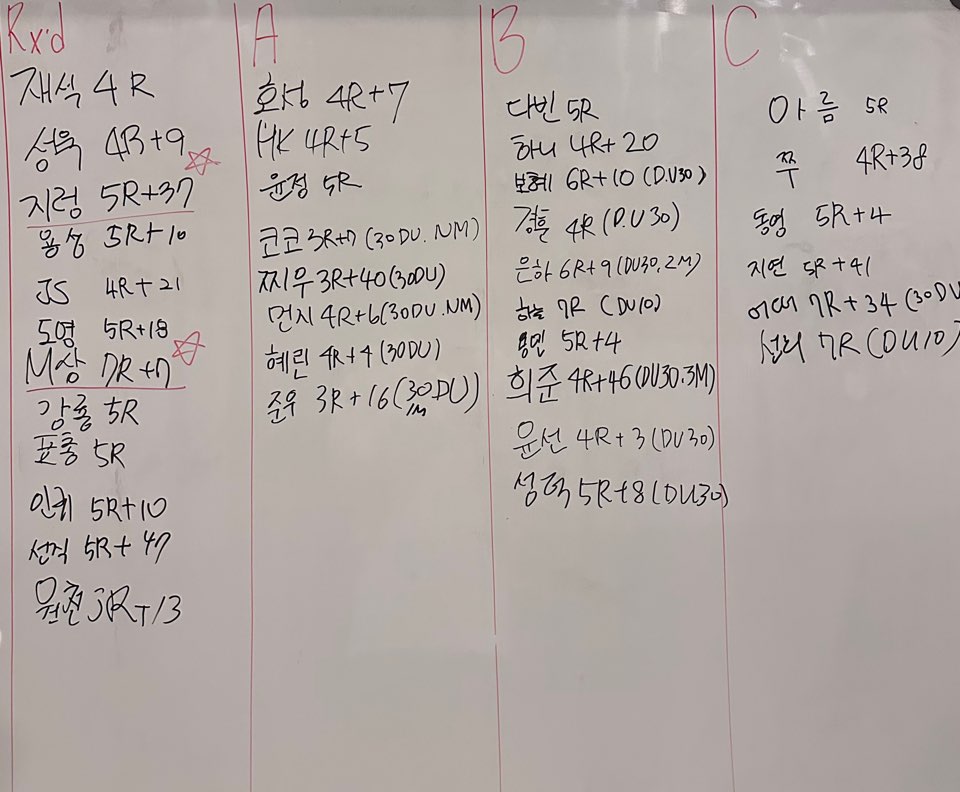 Rx'd
재석 4R
성욱 4R+9
지렁 5R+37
용성 5R+10
JS 4R+21
도영 5R+18
M상 7R+7
강룡 5R
표충 5R
인퀴 5R+10
선직 5R+47
R+13
A
호성 4R+7
HK 4R+5
윤정 5R
코코 3R+7 (30DU.NM)
찌우 3R+40 (30DU)
먼지 4R+6 (30DU.NM)
혜린 4R+4 (30DU)
준우 3R+16 (30DU)
B
다빈 5R
하니 4R+20
보혜 6R+10 (D.U30)
경훈 4R (D.U30)
은하 6R+9 (DU30.2M)
하늘 7R (DU10)
용민 5R+4
희준 4R+46 (DU30.3M)
윤선 4R+3 (DU30)
성덕 5R+8 (DU30)
C
아름 5R
쭈 4R+38
동영 5R+4
지연 5R+41
7R+34 (30DU
7R (DU10)